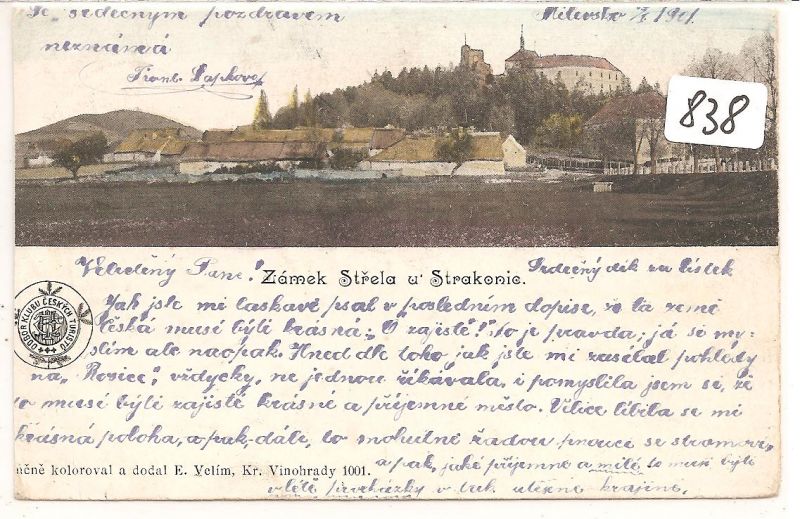 Se srdečným pozdravem
neznámá
Milevsko 1901.
838
Velectěný Pane!
Zámek Střela u Strakonic.
Srdečný dík za lístek
ODBOR KLUBU ČESKÝCH TURISTŮ
Jak jste mi laskavě psal v posledním dopise, že ta země
česká musí býti krásná; "O zajisté!" to je pravda; já si my-
slím ale naopak. Hned dle toho, jak jste mi zaselal pohledy
na „ ", vždycky, ne jednou říkávala, i pomyslila jsem si, že
to musí býti zajisté krásné a příjemné město. Velice líbila se mi
krásná poloha, a pak, dále, to mohutné řadou pnoucí se stromoví,
a pak, jaké příjemné a milé to musí býti
v létě procházky v tak utěšené krajině.
něně koloroval a dodal E. Velím, Kr. Vinohrady 1001.